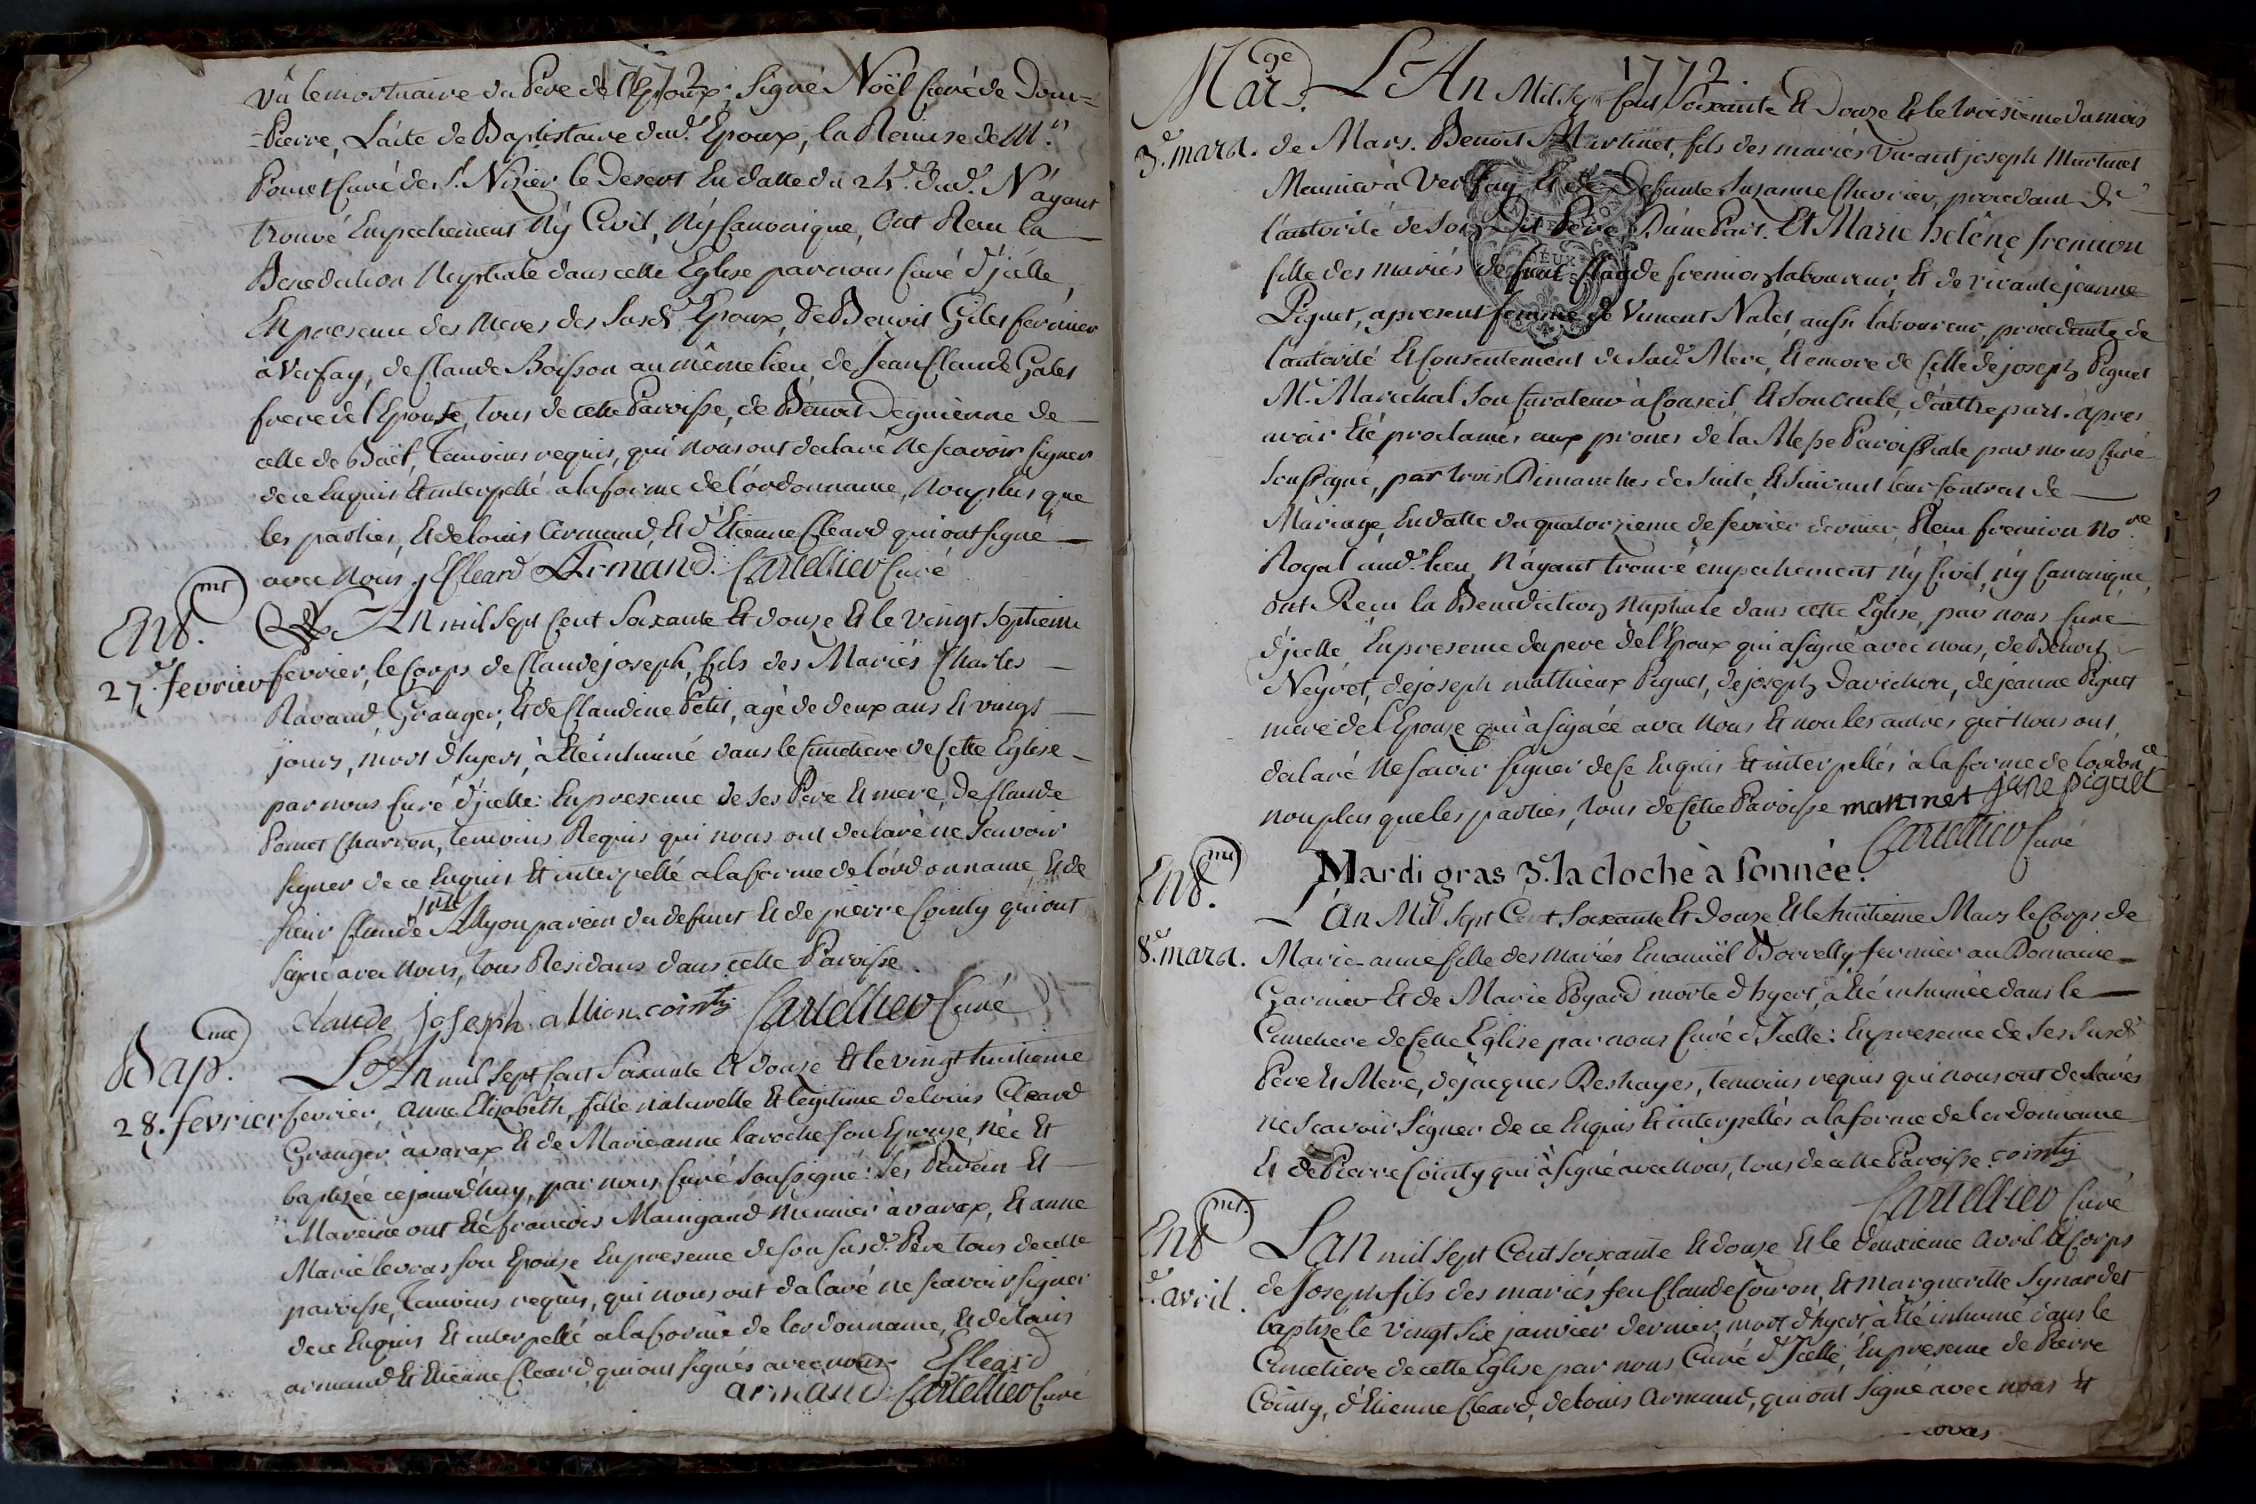 1772
Vû le mortuaire du Pere de l'Epoux; signé Noël Curé de Dom=
=Pierre, L'acte de Baptistaire dud. Epoux, la Remise de Mr.
Pomet Curé de St. Nizier le Desert En datte du 24e. dud. N'ayant
trouvé Empechement Ny Civil, Ny Canonique, Ont Recu la
Benediction Nuptiale dans cette Eglise par nous Curé d'jcelle,
En presence des Meres des Susd. Epoux, de Benoit Gilet fermier
à Versay, de Claude Boisson au même lieu, de Jean Claude Galet
frere de l'Epouse, tous de cette Paroisse, de Benoit Deguienne de
celle de Baët, Temoins requis, qui nous ont declaré Ne scavoir signer
de ce Enquis Et interpellé a la forme de l'ordonnance, Nonplus que
les parties, Et de louis Armand, Et d'Etienne Cleard qui ont signé
avec Nous. ECleard LArmand. Cartellier Curé
Ent. mt
27e. fevrier
L'An mil Sept Cent Soixante Et douze Et le vingt septieme
fevrier, le Corps de Claude joseph, fils des Mariés Charles
Ravaud, Granger, Et de Claudine Petit, agé de deux ans Et vingt
jours, mort d'hyert, à Eté inhumé dans le Cimetiere de Cette Eglise
par nous Curé d'jcelle: En presence de ses Pere Et mere, de Claude
Pomet Charron, temoins Requis qui nous ont declaré ne Scavoir
signer de ce Enquis Et interpellé a la forme de l'ordonnance, Et de
sieur Claude jph Allyon parein du defunt Et de pierre Cointy qui ont
signé avec Nous, tous Residans dans cette Paroisse.
Claude joseph allion. cointy Cartellier Curé
Bap. me
28. fevrier
L'An mil Sept Cent Soixante Et douze Et le vingt huitieme
fevrier, Anne Elizabeth, fille naturelle Et legitime de louis Cleard
Granger à varax Et de Marie anne laroche son Epouse, née Et
baptisée cejourd'huy, par nous Curé Soussigné: Ses Parein Et
Mareine ont Eté francois Maingand Meunier à varax, Et anne
Marie levras son Epouse En presence de son susd. Pere tous de cette
paroisse, Temoins requis, qui nous ont declaré ne scavoir signer
de ce Enquis Et interpellé a la forme de lordonnance, Et de louis
armand Et Etienne Cleard, qui ont signés avec nous. ECleard
armand Cartellier Curé
1772.
Mar. ge
3e. mars.
L'An Mil Sept Cent Soixante Et Douze Et le troisieme du mois
de Mars. Benoit Martinet, fils des mariés vivant joseph Martinet
Meunier à Versay, Et de Defunte Suzanne Chevrier, procedant de
l'autorité de son Dit Pere D'une Part. Et Marie hélène fremion
fille des mariés defunt Claude fremion laboureur, Et de vivante jeanne
Piguet, apresent femme de Vincent Nalet, aussi laboureur, procedante de
l'autorité Et Consentement de Sad. Mere, Et encore de Celle de joseph Piguet
Me. Marechal Son Curateur à Conseil, Et Son oncle, d'autre part. apres
avoir Eté proclamés aux prones de la Messe Paroissiale par nous Curé
Soussigné, par trois Dimanches de Suite, Et Suivant leur Contrat de
Mariage, En datte du quatorzieme de fevrier dernier, Recu fremion Nore.
Royal aud. lieu, N'ayant trouvé empechement ny Civil, ny Canonique,
ont Recu la Benediction Nuptiale dans cette Eglise, par nous Curé
d'jcelle En presence du pere de l'Epoux qui a signé avec nous, de Benoit
Neyret, de joseph mathieux Piguet, de joseph Davichon, de jeanne Piguet
mere de l'Epouse qui à signée avec Nous Et non les autres qui nous ont
declaré Ne scavoir signer de Ce Enquis Et interpellés à la forme de lordonce.
nonplus que les parties, tous de Cette Paroisse martinet jane piguet
Cartellier Curé
Mardi gras 3e. la cloche à sonnée.
Ent. mt
8e. mars.
L'An Mil Sept Cent Soixante Et Douze Et le huitieme Mars le Corps de
Marie-anne fille des Mariés Emanuël Borrelly fermier au Domaine
Garnier Et de Marie Poyard morte d'hyert, à Eté inhumée dans le
Cimetiere de Cette Eglise par nous Curé d'Icelle: En presence de Ses Susd.
Pere Et Mere, de jacques Deshayes, temoins requis qui nous ont declarés
ne Scavoir Signer de ce Enquis Et interpellés a la forme de lordonnance
Et de Pierre Cointy qui à signé avec Nous, tous de cette Paroisse. cointy
Cartellier Curé
Ent mt.
e. avril.
L'An mil Sept Cent Soixante Et douze Et le deuxieme Avril le Corps
de Joseph fils des mariés feu Claude Coiron, Et Marguerite Synardet
baptisé le vingt Six janvier dernier, mort d'hyert, à Eté inhumé dans le
Cimetiere de cette Eglise par nous Curé d'Icelle, En presence de Pierre
Cointy, d'Etienne Cleard, de louis Armand, qui ont Signé avec nous Et